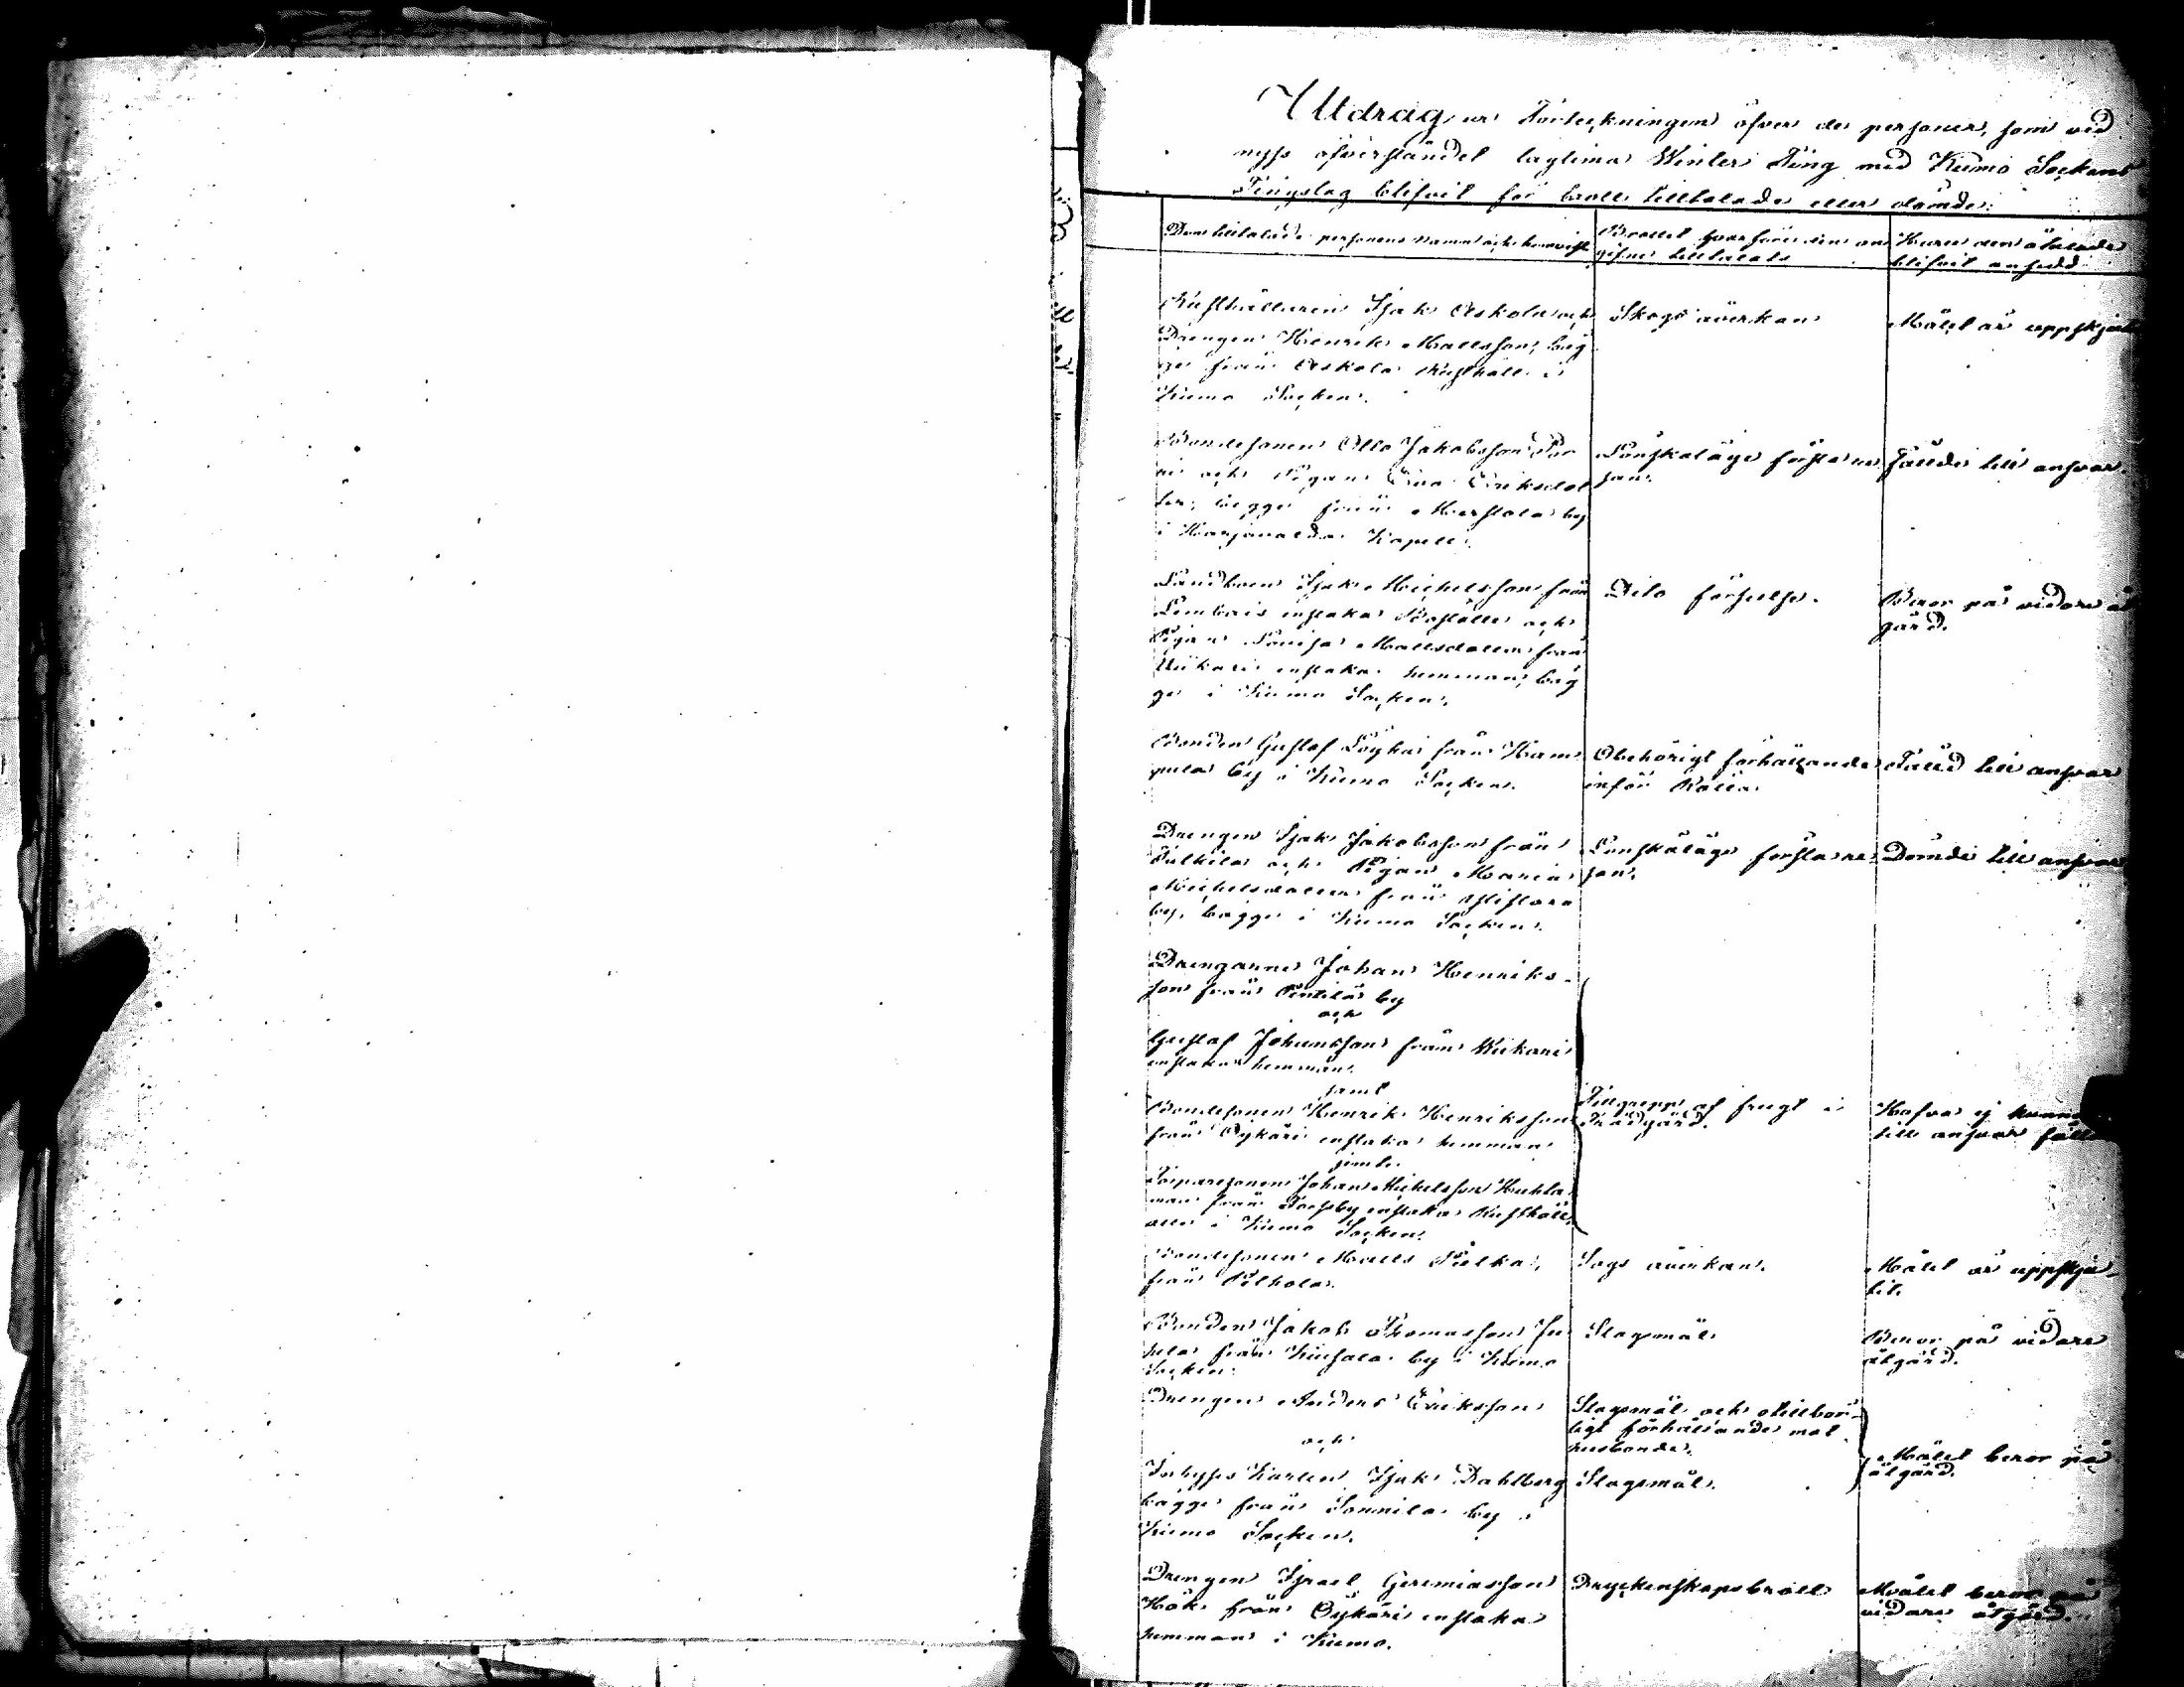 Utdrag ur Förteckningen öfver de personer, som vid
nyss öfverståndet lagtima Winter Ting med Kumo Sockens
Tingslag blifvit för brott tilltalade eller dömde:
Den tilltalade personens namn och hemvist
Brottet hvarföre den an
gifne tilltalats
Huru den åtalade
blifvit ansedd
Rusthållaren Isak Askola och
Drengen Henrik Mattsson, båg
ge från Askola Rusthåll i
Kumo Socken.
Skogs åverkan
Målet är uppskjut
Bondesonen Otto Jakobsson
och Pigan Eva Eriksdot
ter, begge från by
i Harjavalda Kapell.
Lönskaläge första re
san.
Fällde till ansvar.
Landboen Isak Michelsson från
enstaka Boställe och
Pigan Lovisa Mattsdotter från
Wiikari enstaka hemman, båg
ge i Kumo Socken.
Dito förseelse.
Beror på vidare åt
gärd.
Bonden Gustaf från Kam
pula by i Kumo Socken.
Obehörigt förhållande
inför Rätta.
Fälld till ansvar
Drengen Isak Jakobsson från
och Pigan Maria
Michelsdotter från
by, bägge i Kumo Socken.
Lönskaläge första re
san.
Dömde till ansvar
Drengarne Johan Henriks-
son från by
och
Gustaf Johansson från Wiikari
enstaka hemman.
samt
Bondesonen Henrik Henriksson
från Öykäri enstaka hemman
jemte
Torparesonen Johan Michelsson Huhta
man från Forsby enstaka Rusthåll,
alle i Kumo Socken.
Tillgrepp af frugt i
Trädgård.
Hafva ej kunna
till ansvar fälla
Bondesonen Matts Pelka,
från
Sogs åverkan.
Målet är uppskju-
tit.
Bonden Jakob Thomasson Ju
sela från by i Kumo
Socken.
Slagsmål
Beror på vidare
åtgärd.
Drengen Anders Eriksson
och
Inhyses Karlen Isak Dahlberg
bägge från Sonnila by i
Kumo Socken.
Slagsmål och otillbör-
ligt förhållande mot
husbonde.
Slagsmål.
Målet beror på
åtgärd.
Drengen Israel Geremiasson
Hök från Öykäri enstaka
hemman i Kumo.
Dryckenskapsbrott
Målet beror på
vidare åtgärd.